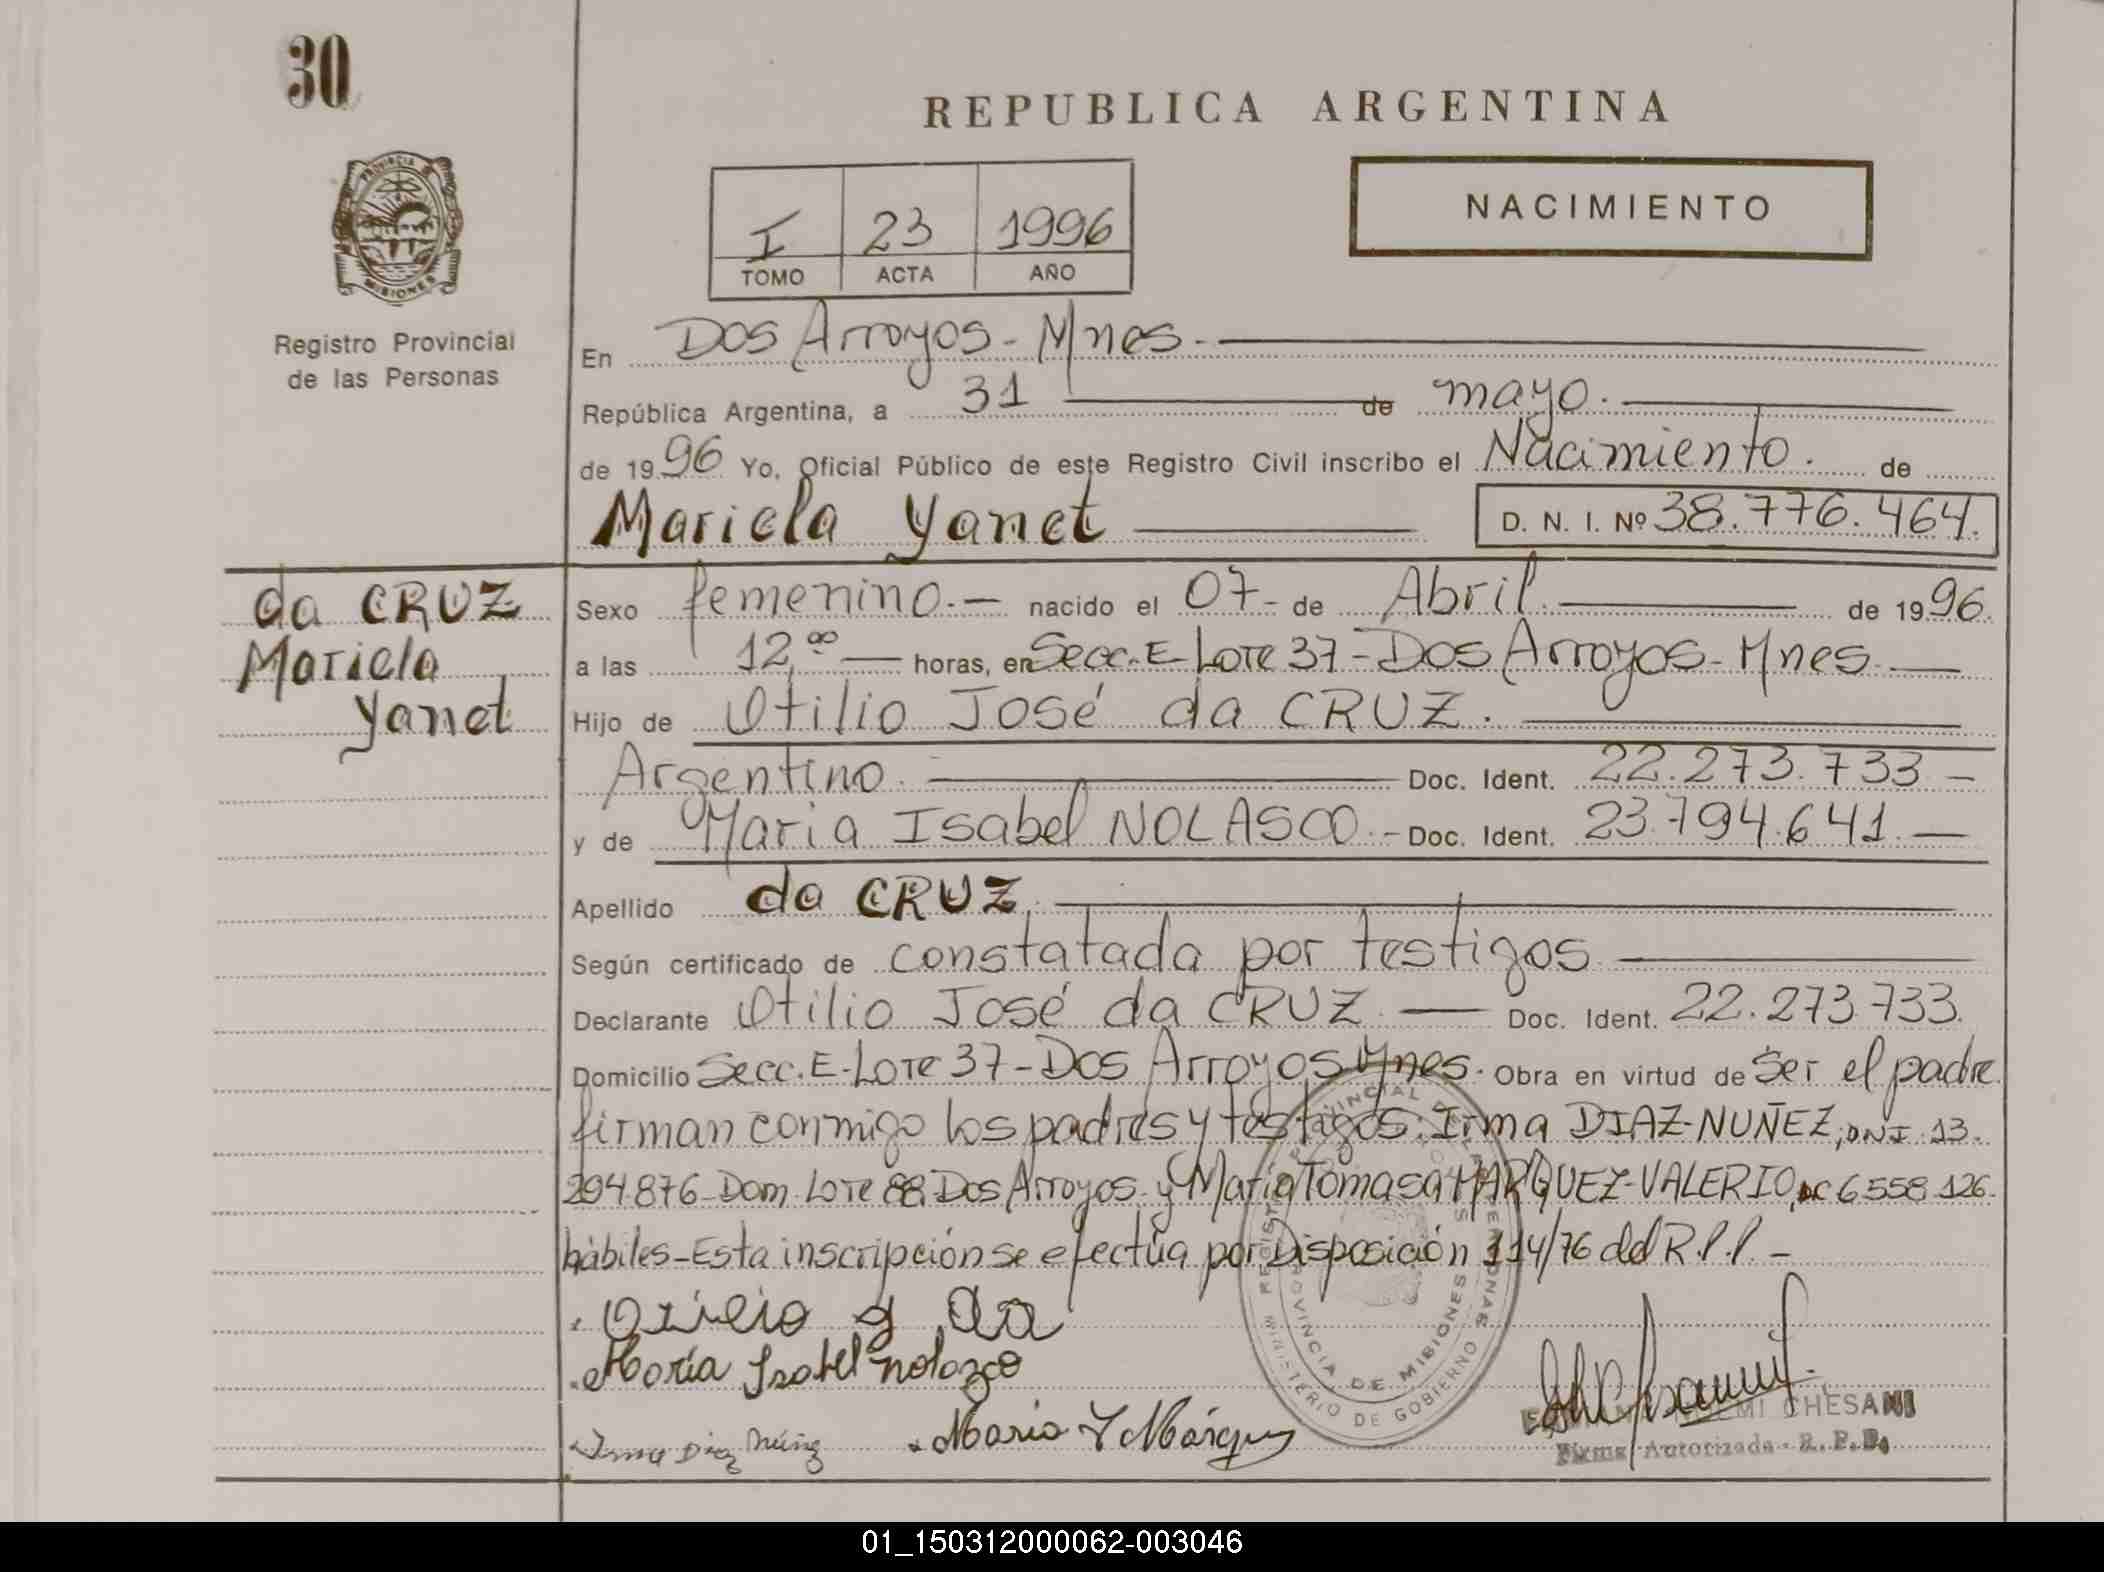 30
REPUBLICA ARGENTINA
NACIMIENTO
I 23 1996
TOMO ACTA AÑO
PROVINCIA
MISIONES
Registro Provincial
de las Personas
En Dos Arroyos - Mnes.
República Argentina, a 31 de mayo.
de 1996 Yo, Oficial Público de este Registro Civil inscribo el Nacimiento. de
Mariela Yanet D. N. I. Nº 38.776.464.
da CRUZ
Mariela
Yanet
Sexo femenino.- nacido el 07- de Abril. de 1996.
a las 12,00 horas, en Secc. E- Lote 37 - Dos Arroyos - Mnes.
Hijo de Otilio José da CRUZ.
Argentino. Doc. Ident. 22.273.733 -
y de Maria Isabel NOLASCO.- Doc. Ident. 23.794.641.
Apellido da CRUZ.
Según certificado de constatada por testigos
Declarante Otilio José da CRUZ. Doc. Ident. 22.273.733.
Domicilio Secc. E- Lote 37 - Dos Arroyos Mnes. Obra en virtud de Ser el padre
firman conmigo los padres y testigos: Irma DIAZ-NUÑEZ, DNI 13.
294.876 - Dom. Lote 88, Dos Arroyos y Maria Tomasa MARQUEZ-VALERIO, LC 6.558.126.
hábiles - Esta inscripción se efectúa por Disposición 114/76 del R.P.P. -
Otilio J da
Maria Isabel Nolazco
Irma Diaz Núñez Maria T Márquez
REGISTRO PROVINCIAL DE LAS PERSONAS
PROVINCIA DE MISIONES
MINISTERIO DE GOBIERNO
NOEMI CHESANI
Firma Autorizada - R. P. P.
01_150312000062-003046